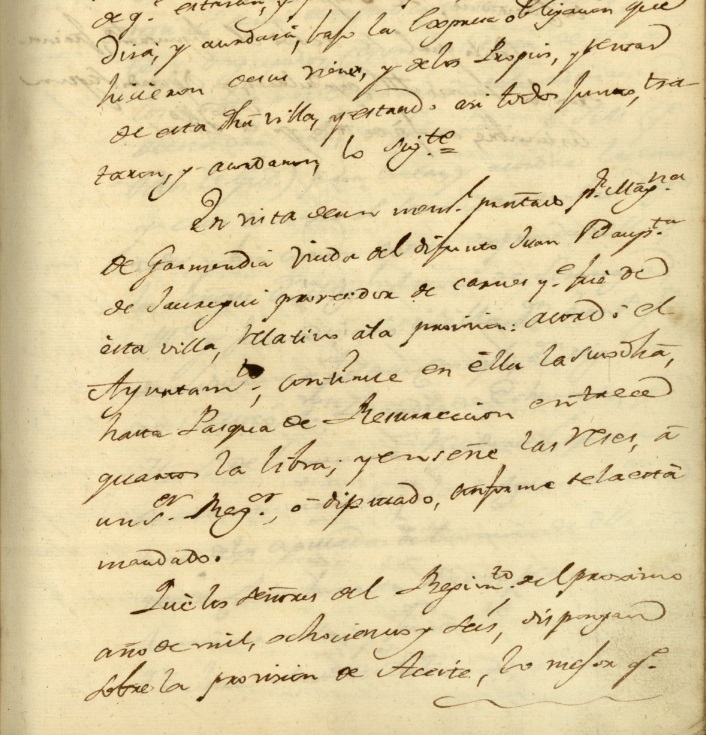 de q.e estarán, y
dirá, y acordará, bajo la expresa obligacion que
hicieron de sus vienes, y de los Propios, y rentas
de esta dha villa, y estando asi todos juntos, tra-
taron, y acordaron, lo sig.te =
En vista de un mem.l prentado p.r
de Garmendia viuda del difunto Juan Baup.ta
de Jauregui proveedor de carnes q.e fué de
esta villa, relativo ala provision: acordó el
Ayuntam.to, continue en ella la susodha,
hasta Pasqua de Resurreccion en trece
quartos la libra; y enseñe las reses, á
un S.or Reg.or, ó diputado, conforme se la está
mandado.
Que los señores del Regim.to del proximo
año de mil, ochocientos y seis, dispongan
sobre la provision de Aceite, lo mejor q.e